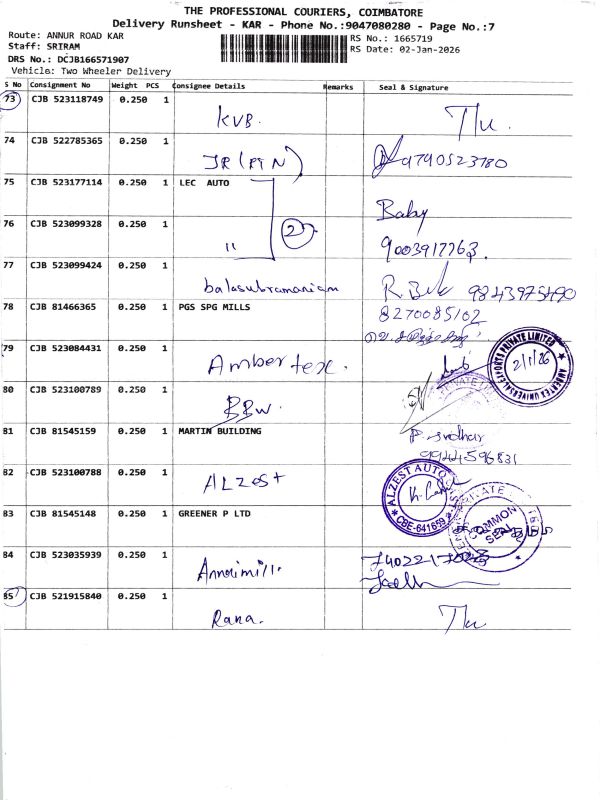 THE PROFESSIONAL COURIERS, COIMBATORE
Delivery Runsheet - KAR - Phone No.:9047080280 - Page No.:7
Route: ANNUR ROAD KAR
Staff: SRIRAM
DRS No.: DCJB166571907
Vehicle: Two Wheeler Delivery
RS No.: 1665719
RS Date: 02-Jan-2026
S No Consignment No Weight PCS Consignee Details Remarks Seal & Signature
73 CJB 523118749 0.250 1 KVB.
74 CJB 522785365 0.250 1 JR (PTN) 9790523780
75 CJB 523177114 0.250 1 LEC AUTO Baby
76 CJB 523099328 0.250 1 " 2 9003917763.
77 CJB 523099424 0.250 1 balasubramaniam 9843975490
78 CJB 81466365 0.250 1 PGS SPG MILLS 8270085102
79 CJB 523084431 0.250 1 Ambertex. 2/1/26
AMBERTEX UNIVERSAL EXPORTS PRIVATE LIMITED
80 CJB 523100789 0.250 1 BBW.
81 CJB 81545159 0.250 1 MARTIN BUILDING P. Sridhar
9944596831
82 CJB 523100788 0.250 1 ALZEST
ALZEST AUTO
CBE-641659
83 CJB 81545148 0.250 1 GREENER P LTD
COMMON SEAL
84 CJB 523035939 0.250 1 Annaimill.
85 CJB 521915840 0.250 1 Rana.